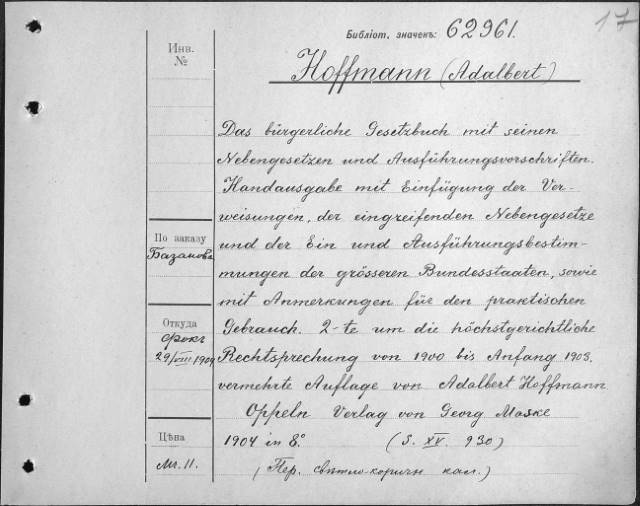 17
Библіот. значекъ: 62961.
Инв.
№
Hoffmann (Adalbert)
Das bürgerliche Gesetzbuch mit seinen
Nebengesetzen und Ausführungsvorschriften.
Handausgabe mit Einfügung der Ver-
weisungen, der eingreifenden Nebengesetze
und der Ein und Ausführungsbestim-
mungen der grösseren Bundesstaaten, sowie
mit Anmerkungen für den praktischen
Gebrauch. 2-te um die höchstgerichtliche
Rechtsprechung von 1900 bis Anfang 1903.
vermehrte Auflage von Adalbert Hoffmann
Oppeln Verlag von Georg Maske
1904 in 8°. (S. XV. 930)
(Пер. свѣтло-коричн кал.)
По заказу
Базанова
Откуда
Фокъ
29/VIII 1904
Цѣна
Mr. 11.